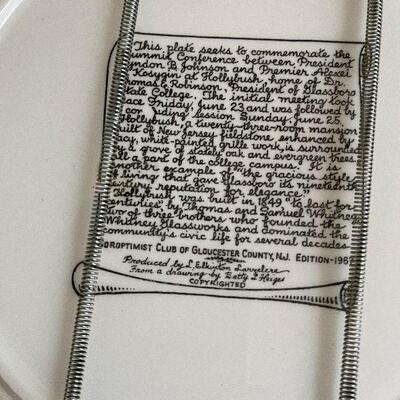 This plate seeks to commemorate the
Summit Conference between President
Lyndon B. Johnson and Premier Alexei
Kosygin at Hollybush, home of Dr.
Thomas E. Robinson, President of Glassboro
State College. The initial meeting took
place Friday, June 23 and was followed by
con uding session Sunday, June 25.
Hollybush, a twenty-three-room mansion
built of New Jersey fieldstone enhanced by
lacy, white-painted grille work, is surrounded
by a grove of stately oak and evergreen trees,
all a part of the college campus. It is
another example of "the gracious style
of living that gave Glassboro its nineteenth
century reputation for elegance."
Hollybush was built in 1849 "to last for
centuries", by Thomas and Samuel Whitney,
two of three brothers who founded the
Whitney Glassworks and dominated the
community's civic life for several decades
SOROPTIMIST CLUB OF GLOUCESTER COUNTY, N.J. EDITION-1967
Produced by L. Elkinton Larzelere
From a drawing by Betty L. Heiges
COPYRIGHTED